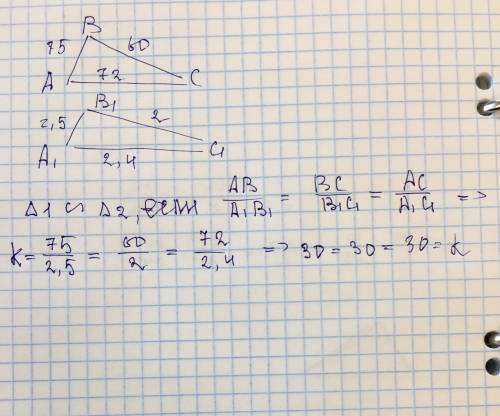 B
75 60
A 72 C
B₁
2,5 2
A₁ 2,4 C₁
Δ1 ∽ Δ2, если AB/A₁B₁ = BC/B₁C₁ = AC/A₁C₁ =>
K = 75/2,5 = 60/2 = 72/2,4 => 30 = 30 = 30 = k